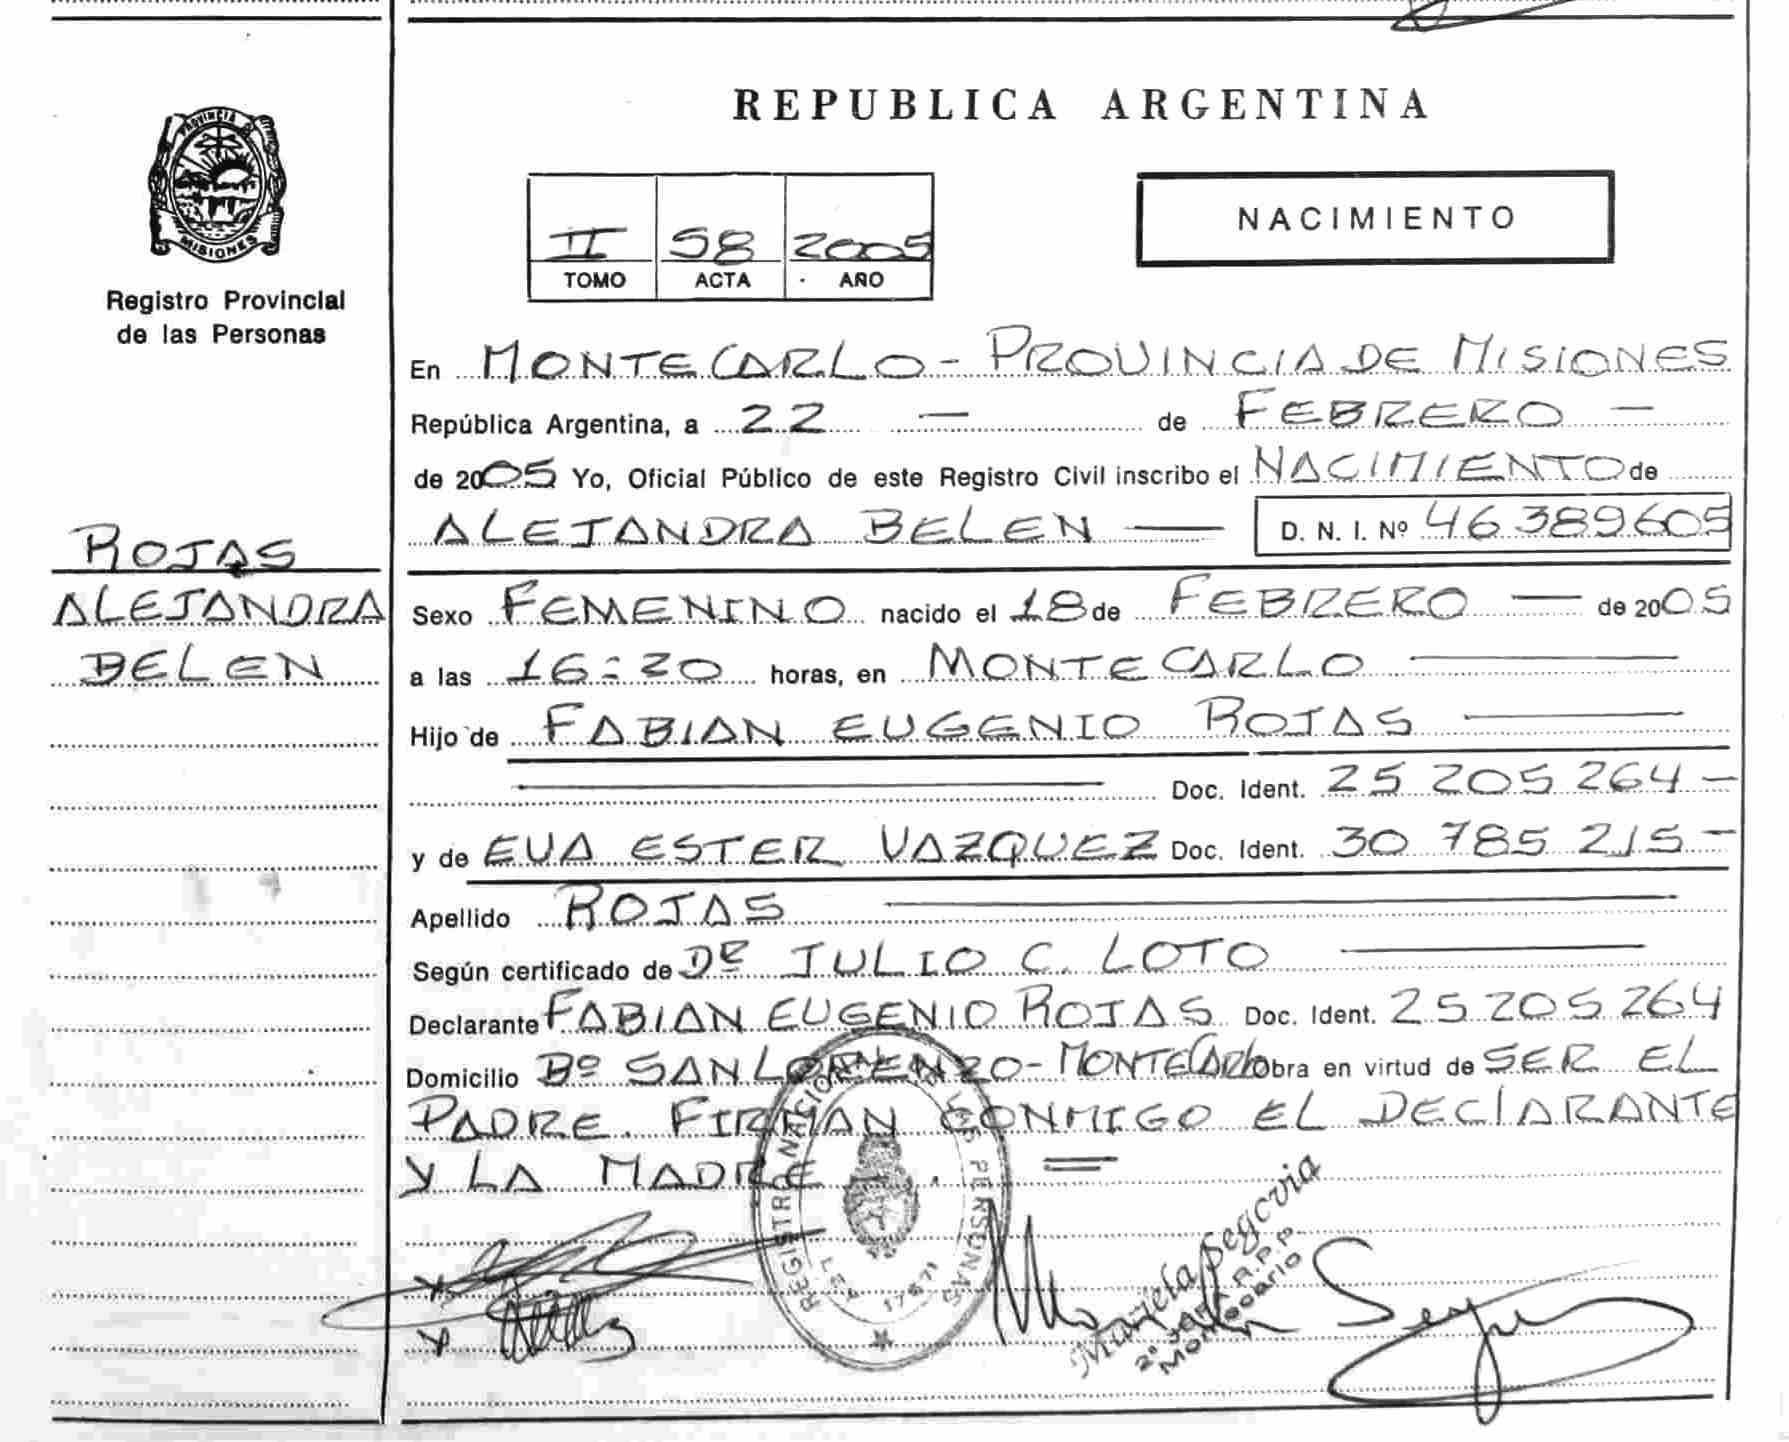 PROVINCIA
MISIONES
Registro Provincial
de las Personas
ROJAS
ALEJANDRA
BELEN
REPUBLICA ARGENTINA
II 58 2005
TOMO ACTA AÑO
NACIMIENTO
En MONTECARLO - PROVINCIA DE MISIONES
República Argentina, a 22 — de FEBRERO —
de 2005 Yo, Oficial Público de este Registro Civil inscribo el NACIMIENTO de
ALEJANDRA BELEN — D. N. I. Nº 46389605
Sexo FEMENINO nacido el 18 de FEBRERO — de 2005
a las 16:20 horas, en MONTECARLO —
Hijo de FABIAN EUGENIO ROJAS —
— Doc. Ident. 25 205 264 —
y de EVA ESTER VAZQUEZ Doc. Ident. 30 785 215 —
Apellido ROJAS —
Según certificado de Dr JULIO C. LOTO —
Declarante FABIAN EUGENIO ROJAS Doc. Ident. 25 205 264
Domicilio Bº SAN LORENZO - MONTECARLO obra en virtud de SER EL
PADRE. FIRMAN CONMIGO EL DECLARANTE
Y LA MADRE. =
REGISTRO NACIONAL DE LAS PERSONAS
LEY 17671
Marcela Segovia
2º JEFA R.P.P
Montecarlo